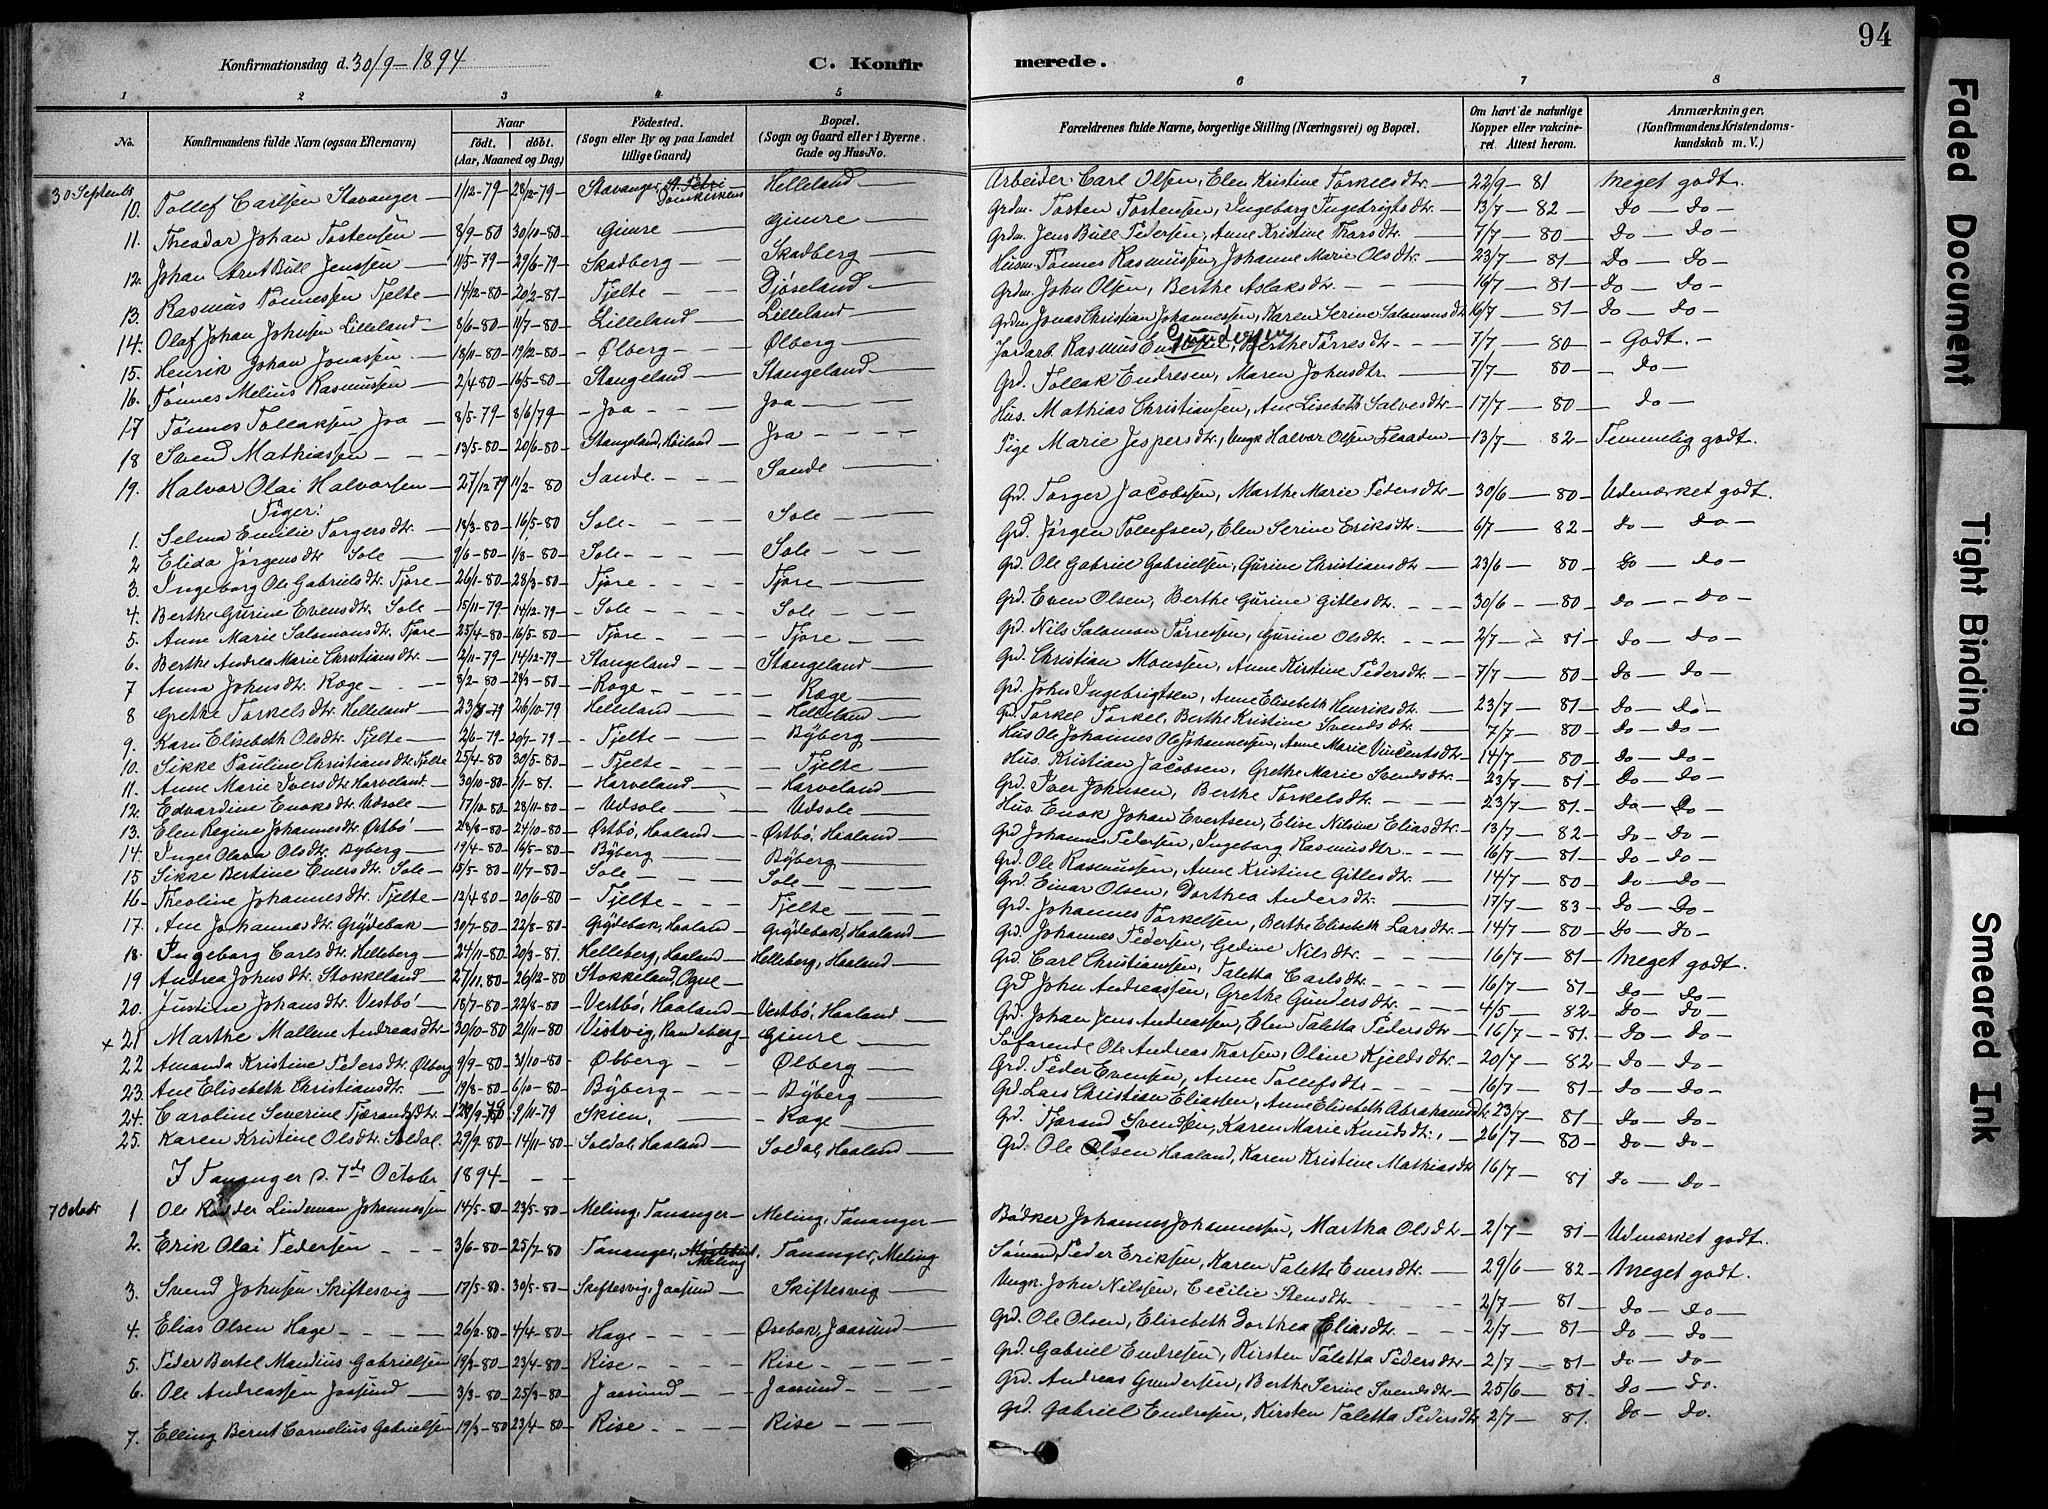 94
Konfirmationsdag d. 30/9 - 1894
C. Konfirmerede.
1 2 3 4 5 6 7 8
No. | Konfirmandens fulde Navn (ogsaa Efternavn) | Naar født. døbt. (Aar, Maaned og Dag) | Fødested. (Sogn eller By og paa Landet tillige Gaard) | Bopæl. (Sogn og Gaard eller i Byerne. Gade og Hus-No. | Forældrenes fulde Navne, borgerlige Stilling (Næringsvei) og Bopæl. | Om havt de naturlige Kopper eller vakcineret. Attest herom. | Anmærkninger. (Konfirmandens Kristendomskundskab m. V.)
30 Septembr
10. Tollef Carlsen Stavanger 1/12-79 28/12-79 Stavanger, St. Petri Domkirkens Helleland Arbeider Carl Olsen, Elen Kristine Torkelsdtr. 22/9-81 Meget godt.
11. Theodor Johan Tostensen 8/9-80 30/10-80 Gimre Gimre Grdm. Tosten Tostensen, Ingeborg Ingebrigtsdtr. 13/7-82 Do Do
12. Johan Arnt Bull Jenssen 11/5-79 29/6-79 Skadberg Skadberg Grdm. Jens Bull Pedersen, Anne Kristine Tharsdtr. 7/7-80 Do Do
13. Rasmus Tønnessen Tjelte 14/12-80 20/2-81 Tjelte Djøseland Husm. Tønnes Rasmussen, Johanne Marie Olsdtr. 23/7-81 Do Do
14. Olaf Johan Johnsen Lilleland 8/6-80 11/7-80 Lilleland Lilleland Grdm. John Olsen, Berthe Aslaksdtr. 16/7-81 Do Do
15. Henrik Johan Jonassen 18/11-80 19/12-80 Ølberg Ølberg Grdm Jonas Christian Johannessen, Karen Serine Salomonsdtr. 16/7-81 Do Do
16. Tønnes Melius Rasmussen 2/4-80 16/5-80 Stangeland Stangeland Jordarb. Rasmus Gundersen, Berthe Tørresdtr. 7/7-80 Godt.
17 Tønnes Tollaksen Joa 8/5-79 8/6/79 Joa Joa Grd. Tollak Endresen, Maren Johnsdtr. 7/7-80 Do
18 Svend Mathiassen 13/5-80 20/6-80 Stangeland, Høiland Joa Hus. Mathias Christiansen, Ane Lisebeth Salvesdtr. 17/7-80 Do
19. Halvor Olai Halvorsen 27/12-79 11/2-80 Sande Sande Pige Marie Jespersdtr., Ungk Halvor Olsen Flaaden 13/7-82 Temmelig godt.
Piger:
1. Selma Emilie Torgersdtr. 18/3-80 16/5-80 Sole Sole Grd. Torger Jacobssen, Marthe Marie Pedersdtr 30/6-80 Udmærket godt.
2 Elida Jørgensdtr Sole 9/6-80 1/8-80 Sole Sole Grd. Jørgen Tollefsen, Elen Serine Eriksdtr. 6/7-82 Do Do
3. Ingeborg Ole Gabrielsdtr. Tjore 26/1-80 28/3-80 Tjore Tjore Grd. Ole Gabriel Gabrielsen, Gurine Christiansdtr 23/6-80 Do Do
4. Berthe Gurine Evensdtr. Sole 15/11-79 14/12-79 Sole Sole Grd. Even Olsen, Berthe Gurine Gitlesdtr. 30/6-80 Do Do
5. Anne Marie Salomonsdtr. Tjore 25/4-80 16/5-80 Tjore Tjore Grd. Nils Salomon Tørressen, Gurine Olsdtr. 2/7-81 Do Do
6. Berthe Andrea Marie Christiansdtr. 2/11-79 14/12-79 Stangeland Stangeland Grd. Christian Monssen, Anne Kirstine Pedersdtr. 7/7-80 Do Do
7 Anna Johnsdtr. Ræge 8/2-80 29/3-80 Ræge Ræge Grd. John Ingebrigtsen, Anne Elisabeth Henriksdtr. 23/7-81 Do Do
8 Grethe Torkelsdtr. Helleland 23/8-79 26/10-79 Helleland Helleland Grd. Torkel Torkel, Berthe Kristine Svendsdtr. 7/7-80 Do Do
9. Karn Elisebeth Olsdtr. Tjelte 2/6-79 20/7-79 Tjelte Byberg Hus Ole Johannes Ole Johannessen, Anne Marie Vincentsdtr. 14/7-80 Do Do
10. Sikke Pauline Christiansdtr Tjelte 25/4-80 30/5-80 Tjelte Tjelte Hus. Kristian Jacobsen, Grethe Marie Svendsdtr. 23/7-81 Do Do
11. Anne Marie Iversdtr. Harveland 30/10-80 1/1-81. Harveland Harveland Grd. Iver Johnsen, Berthe Torkelsdtr. 23/7-81. Do Do
12. Edvardine Enoksdtr. Udsole 17/10-80 28/11-80 Udsole Udsole Hus. Enok Johan Evertsen, Elise Nilsine Eliasdtr. 13/7-82 Do Do
13. Elen Regine Johannesdtr. Østbö 28/8-80 24/10-80 Østbö, Haaland Østbö, Haaland Grd Johannes Pedersen, Ingeborg Rasmusdtr. 16/7-81 Do Do
14. Inger Olava Olsdtr. Byberg 19/4-80 16/5-80 Byberg Byberg Grd. Ole Rasmussen, Anne Kristine Gitlesdtr. 14/7-80 Do Do
15 Sikke Bertine Enersdtr. Sole 15/5-80 11/7-80 Sole Sole Grd. Einar Olsen, Dorthea Andersdtr. 17/7-83 Do Do
16- Theoline Johannesdtr. Tjelte 12/4-80 20/6-80 Tjelte Tjelte Grd. Johannes Torkelsen, Berthe Elisebeth Larsdtr. 14/7-80 Do Do
17. Ane Johannesdtr. Grydebak 30/7-80 22/8-80 Grydebak, Haaland Grydebak, Haaland Grd. Johannes Pedersen, Gedine Nilsdtr. 16/7-81 Meget godt.
18. Ingeborg Carlsdtr. Helleberg 24/11-80 20/3-81. Helleberg, Haaland Helleberg, Haaland Grd. Carl Christianssen, Taletta Carlsdtr. 16/7-81 Do Do
19 Andrea Johnsdtr. Stokkeland 27/11.80 26/12-80 Stokkeland, Ogne Grd John Andreassen, Grethe Gundersdtr. 4/5-82 Do Do
20. Justine Johansdtr. Vestbö 18/7-80 22/8-80 Vestbö, Haaland Vestbö, Haaland Grd. Johan Jens Andreassen, Elen Taletta Pedersdtr. 16/7-81. Do Do
x 21 Marthe Mallene Andreasdtr. 30/10-80 21/11-80 Vistvig, Randeberg Gimre Søfarende Ole Andreas Tharsen, Oline Kjeldsdtr. 20/7-82 Do Do
22 Amanda Kristine Pedersdtr. Ølberg 9/9-80 31/10-80 Ølberg Ølberg Grd. Peder Evensen, Anne Tollefsdtr. 16/7-81 Do Do
23. Ane Elisebeth Christiansdtr. 19/8-80 6/10-80 Byberg Byberg Grd Lars Christian Eliassen, Anne Elisebeth Abrahamsdtr 23/7-81 Do Do
24. Caroline Severine Tjærandsdtr. 28/9-79 9/11-79 Skien, Ræge Grd. Tjærand Svendsen, Karen Marie Knudsdtr. 26/7-80 Do Do
25. Karen Kristine Olsdtr. Soldal. 29/9-80 14/11-80 Soldal, Haaland Soldal, Haaland Grd. Ole Olsen Haaland, Karen Kristine Mathiasdtr 16/7-81 Do Do
I Tananger d. 7de October 1894
7 Octobr
1 Ole Lindeman Johannessen 14/5-80 23/5-80 Meling, Tananger Meling, Tananger Bødker Johannes Johannessen, Martha Olsdtr 2/7-81 Udmærket godt.
2. Erik Olai Pedersen 3/6-80 25/7-80 Tananger, Meling Tananger, Meling Sømand, Peder Eriksen, Karen Talette Enersdtr. 29/6-82 Meget godt.
3. Svend Johnsen Skiftesvig 17/5-80. 30/5-80 Skiftesvig, Jaasund Skiftesvig Ungk. John Nilssen, Cecilie Stensdtr. 2/7-81 Do Do
4. Elias Olsen Hage 26/2-80 4/4-80 Hage Øsebak, Jaasund Grd. Ole Olsen, Elisebeth Dorthea Eliasdtr. 2/7-81 Do Do
5. Peder Bertel Mandius Gabrielsen 19/3-80 23/4-80 Rise Rise Grd. Gabriel Endresen, Kirsten Taletta Pedersdtr. 2/7-81 Do Do
6. Ole Andreassen Jaasund 3/3-80 25/3-80 Jaasund Jaasund Grd. Andreas Gundersen, Berthe Serine Svendsdtr. 25/6-81 Do Do.
7. Elling Bernt Cornelius Gabrielsen 19/3-80 23/4-80 Rise Rise Grd. Gabriel Endresen, Kirsten Taletta Pedersdtr. 2/7-81. Do Do.
Faded Document
Tight Binding
Smeared Ink